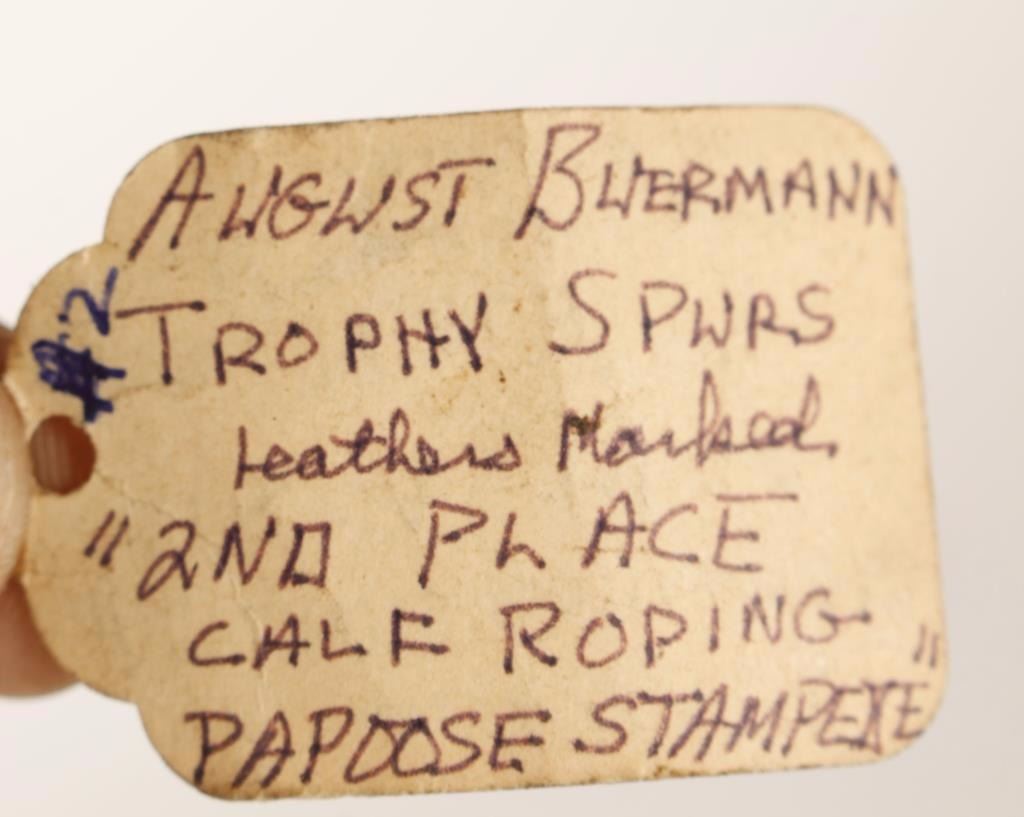 AUGUST BUERMANN
#2
TROPHY SPURS
Leathers Marked
"2ND PLACE
CALF ROPING
PAPOOSE STAMPEDE"